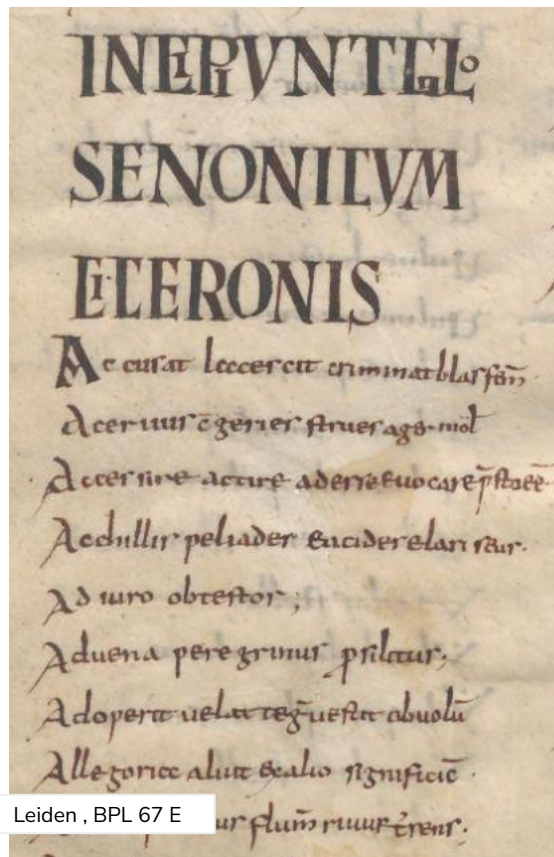 INCIPIVNT GLO
SENONICVM
CICERONIS
Accusat lacerat criminat blasfem̄.
Aceruus c̄geries strues agḡ mol̄
Accersire accire adesse euocare p̄sto eē.
Achillis peliades eacides elariseus.
Adiuro obtestor;
Aduena peregrinus ꝓsilitus;
Adoperit uelat teḡ uestit obuolū
Allegorice aliut ex alio significā.
us flum̄ riuus t̄rens.
Leiden , BPL 67 E